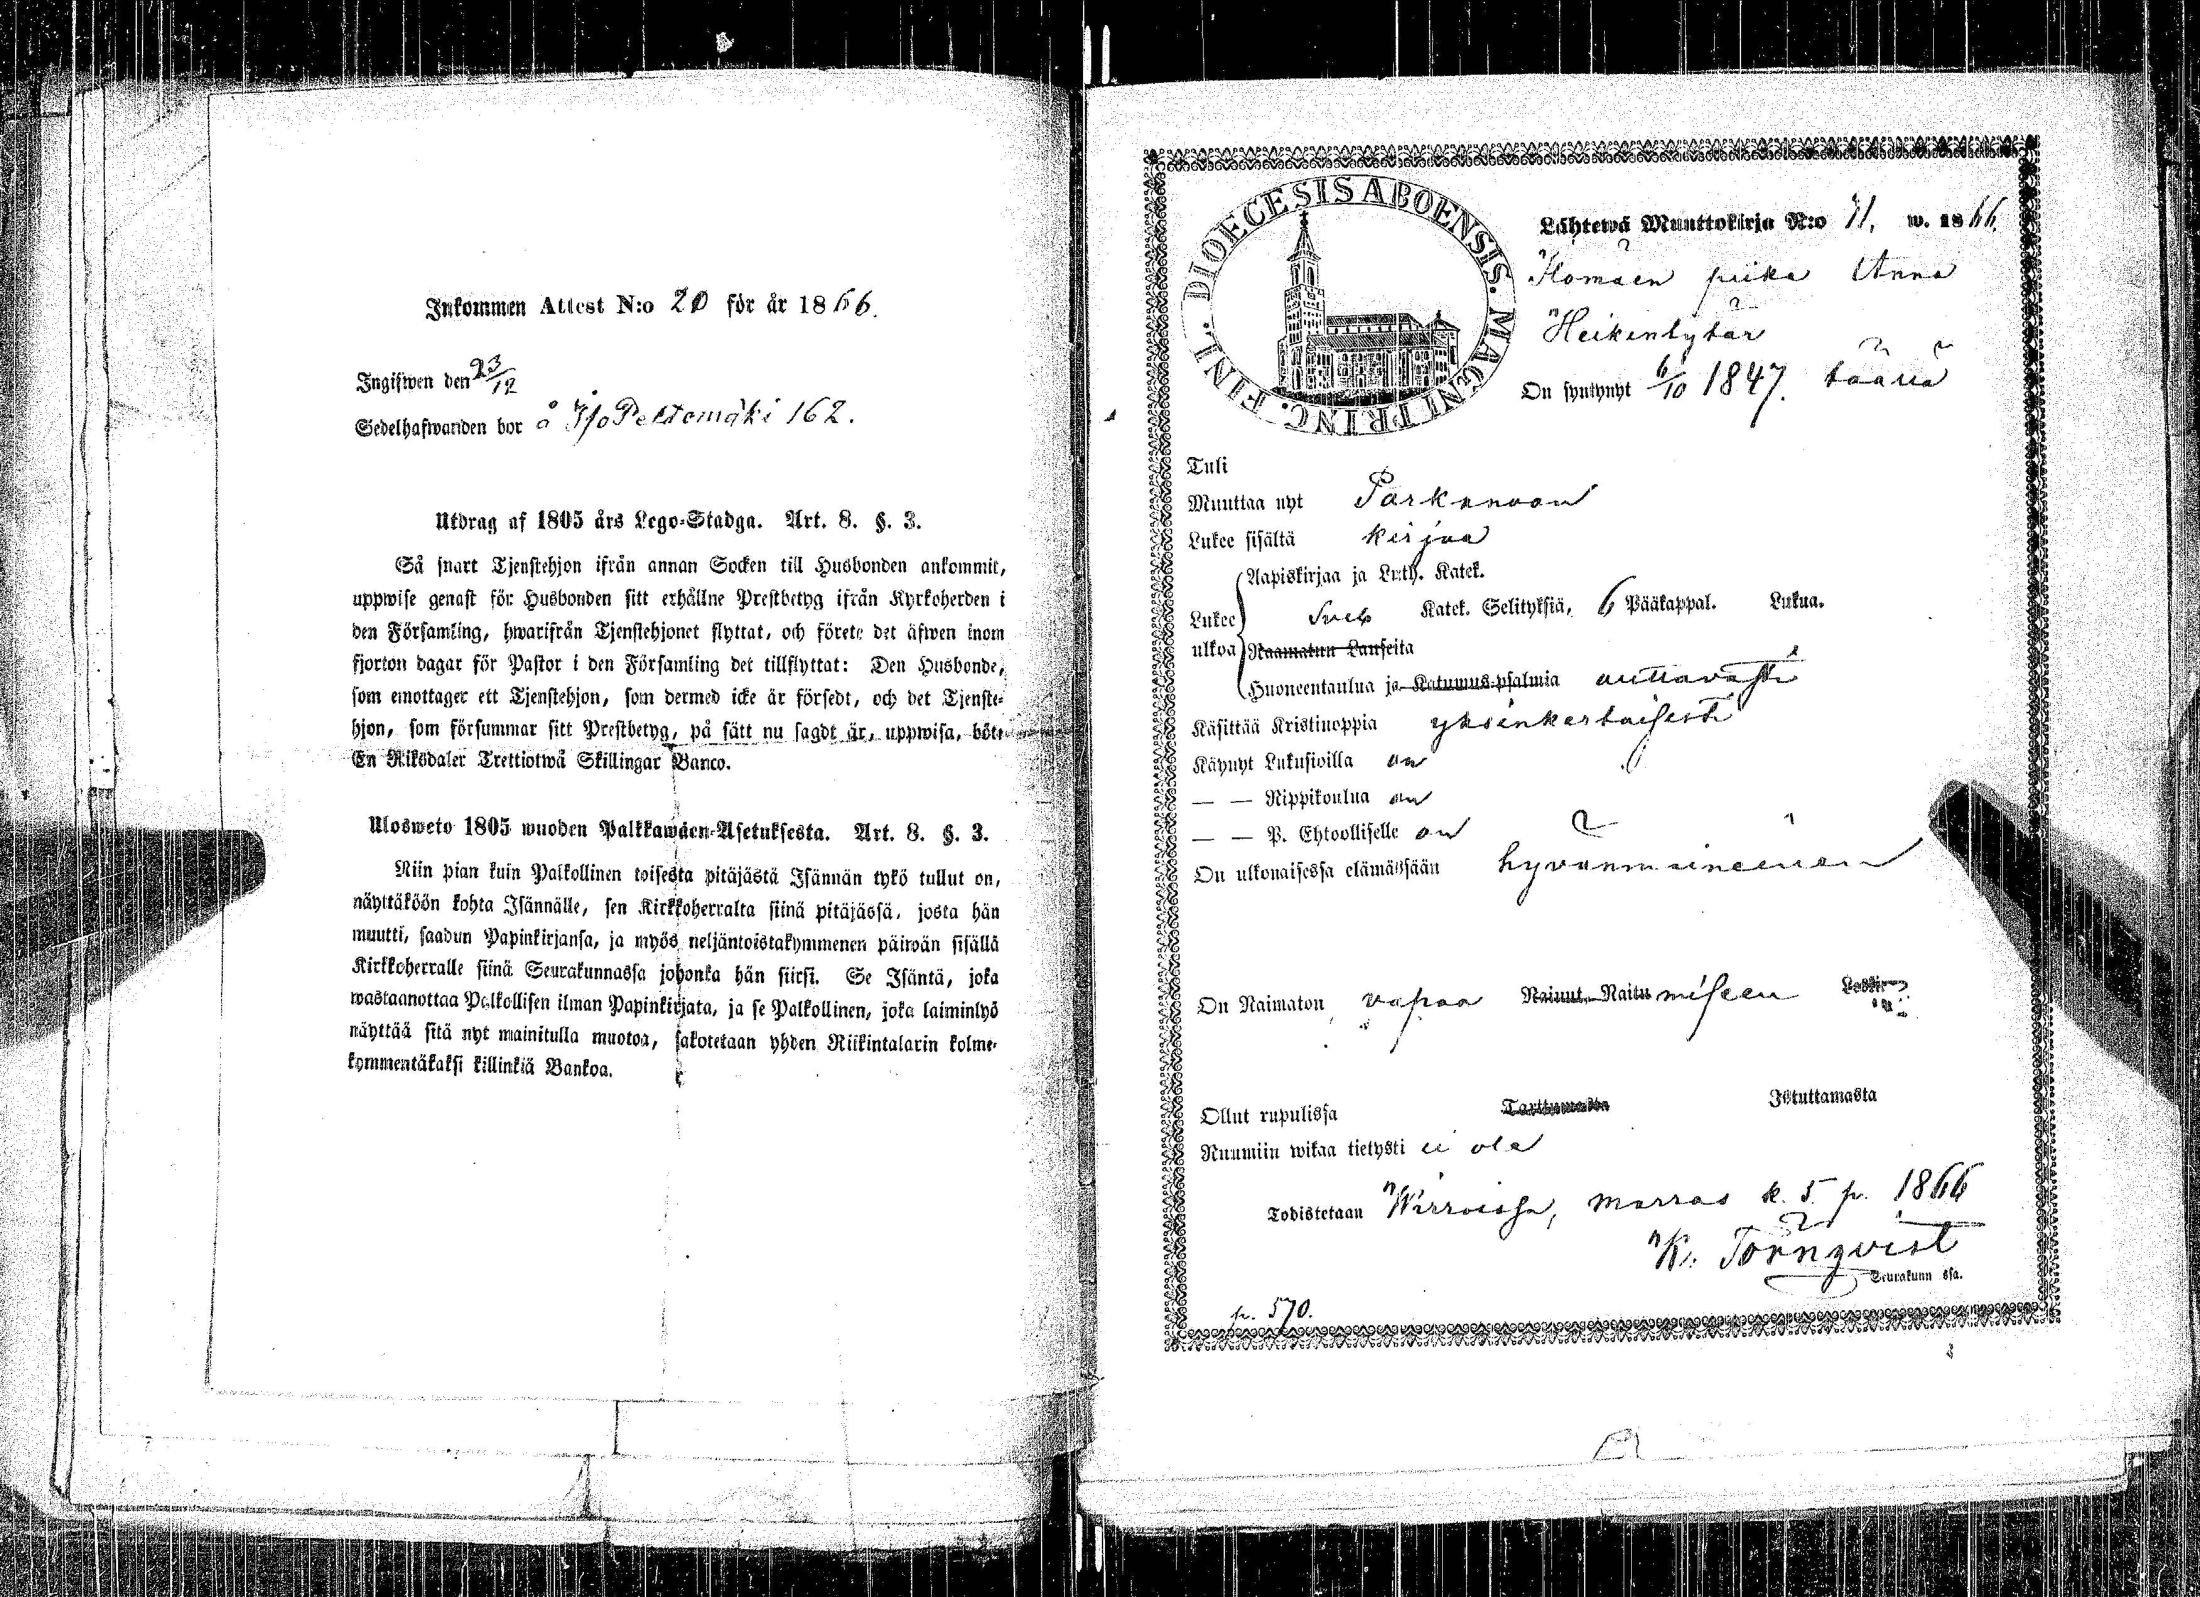 Inkommen Attest N:o 20 för år 1866.
Ingifwen den 23/12
Sedelhafwanden bor å Iso Peltomäki 162.
Utdrag af 1805 års Lego-Stadga. Art. 8. §. 3.
Så snart Tjenstehjon ifrån annan Socken till Husbonden ankommit,
uppwise genast för Husbonden sitt erhållne Prestbetyg ifrån Kyrkoherden i
den Församling, hwarifrån Tjenstehjonet flyttat, och förete det äfwen inom
fjorton dagar för Pastor i den Församling det tillflyttat: Den Husbonde,
som emottager ett Tjenstehjon, som dermed icke är försedt, och det Tjenste-
hjon, som försummar sitt Prestbetyg, på sätt nu sagdt är, uppwisa, böte
En Riksdaler Trettiotwå Skillingar Banco.
Ulosweto 1805 wuoden Palkkawäen-Asetuksesta. Art. 8. §. 3.
Niin pian kuin Palkollinen toisesta pitäjästä Isännän tykö tullut on,
näyttäköön kohta Isännälle, sen Kirkkoherralta siinä pitäjässä, josta hän
muutti, saadun Papinkirjansa, ja myös neljäntoistakymmenen päiwän sisällä
Kirkkoherralle siinä Seurakunnassa johonka hän siirsi. Se Isäntä, joka
wastaanottaa Palkollisen ilman Papinkirjata, ja se Palkollinen, joka laiminlyö
näyttää sitä nyt mainitulla muotoa, sakotetaan yhden Riikintalarin kolme-
kymmentäkaksi killinkiä Bankoa.
FINL. DIOECESIS ABOENSIS. MAGNI PRINC.
Lähtewä Muuttokirja N:o 71. w. 1866.
piika Anna
Heikintytär
On syntynyt 6/10 1847. täällä
Tuli
Muuttaa nyt Parkanoon
Lukee sisältä kirjaa
Aapiskirjaa ja Luth. Katek.
Lukee Sveb Katek. Selityksiä, 6 Pääkappal. Lukua.
ulkoa Raamatun Lauseita
Huoneentaulua ja Katumus-psalmia auttavasti
Käsittää Kristinoppia yksinkertaisesti
Käynyt Lukusioilla on
— — Rippikoulua on
— — P. Ehtoolliselle on
On ulkonaisessa elämässään hyvänmaineinen
On Naimaton, vapaa Nainut, Naitu miseen Leski
Ollut rupulissa Tarttuwasta Istuttamasta
Ruumiin wikaa tietysti ei ole
Todistetaan Wirroissa, marras k. 5 p. 1866
K. Törnqvist
Seurakunn ssa.
p. 570.